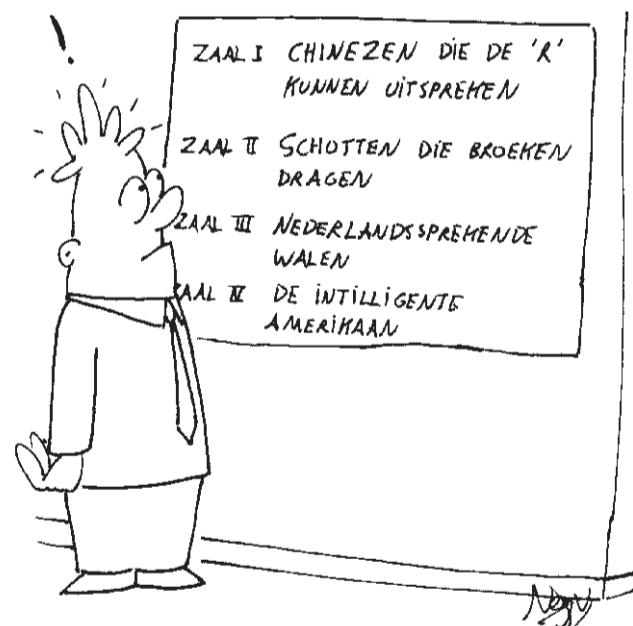 ZAAL I CHINEZEN DIE DE 'R'
KUNNEN UITSPREKEN
ZAAL II SCHOTTEN DIE BROEKEN
DRAGEN
ZAAL III NEDERLANDSSPREKENDE
WALEN
ZAAL IV DE INTILLIGENTE
AMERIKAAN